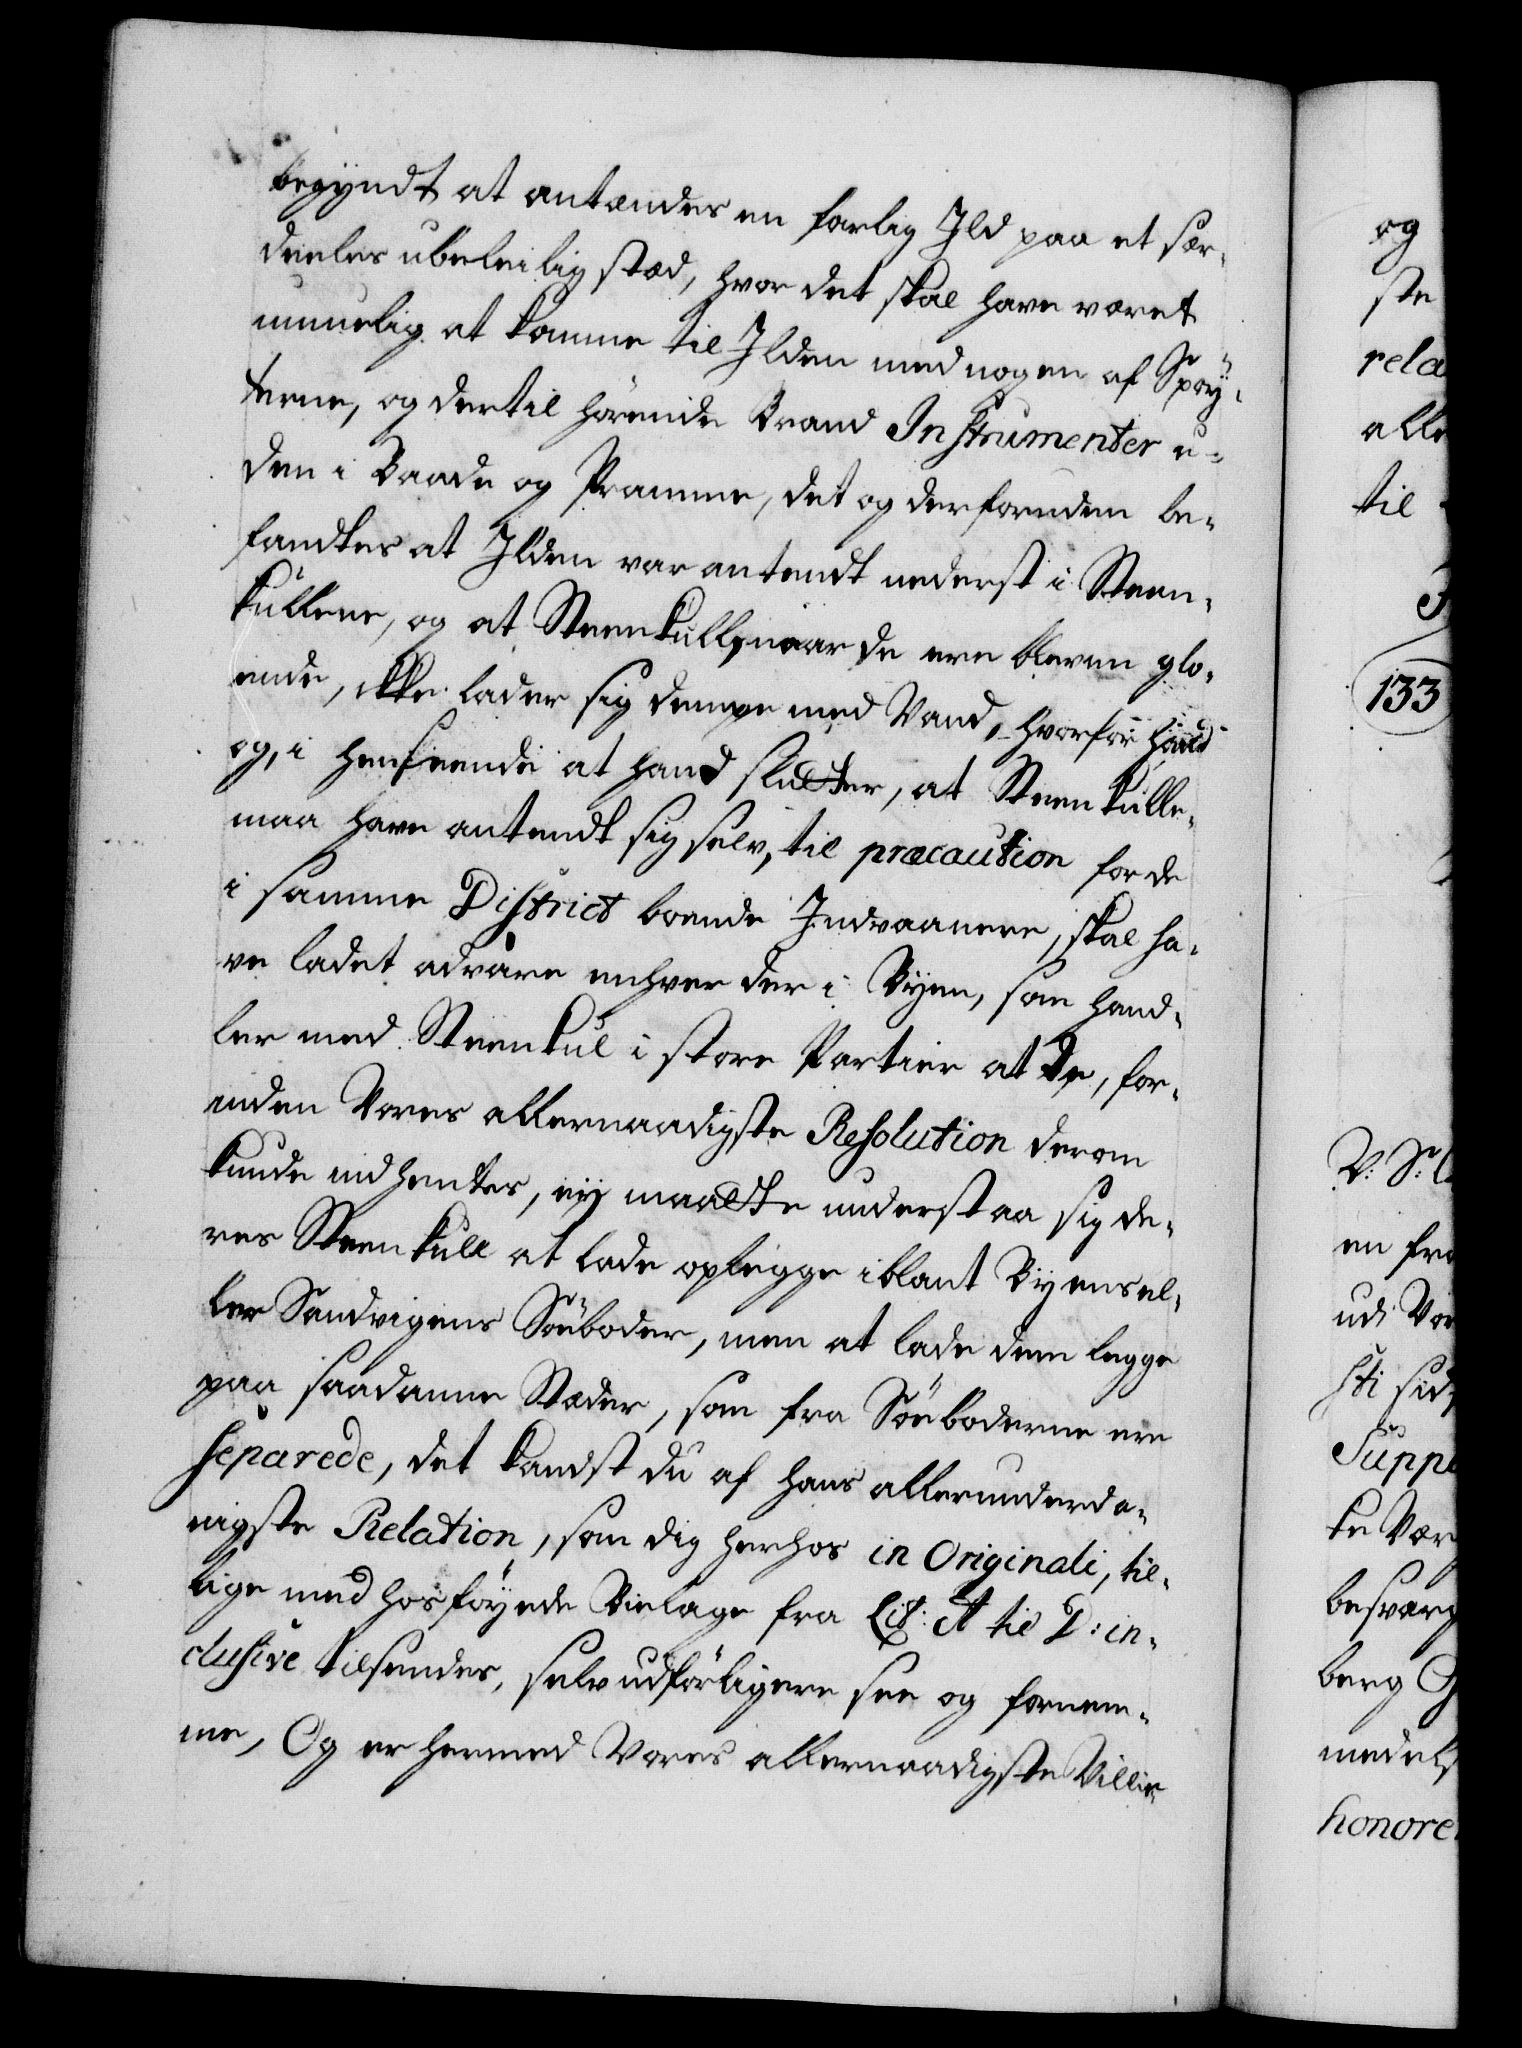 begyndt at antændes en farlig Ild paa et sær-
deeles ubeleilig stæd, hvor det skal have været
umuelig at komme til Ilden med nogen af Spröÿ-
terne, og dertil hörende Brand Instrumenter u-
den i Baade og Pramme, det og derforuden be-
fandtes at Ilden var antendt nederst i Steen-
kullene, og at Steenkull, naar de ere bleven glo-
ende, ikke lader sig dempe med Vand, hvorfor hand
og, i henseende at hand slutter, at Steenkulle-
maa have antendt sig selv, til præcaution for de
i samme District boende Indvaanere, skal ha-
ve ladet advare enhver der i Byen, som hand-
ler med Steenkul i store Partier at de, for-
inden Vores allernaadigste Resolution derom
kunde indhentes, eÿ maatte understaa sig de-
res Steenkull at lade oplegge iblant Byens el-
ler Sandvigens Söeboder, men at lade dem legge
paa saadanne Stæder, som fra Söeboderne ere
separede, det kandst du af hans allerunderda-
nigste Relation, som dig herhos in Originali, til-
lige med hosföÿede Bielage fra Lit: A til D: in-
clusive tilsendes, selv udförligere see og fornem-
me, Og er hermed Vores allernaadigste Villie
og
ste
rela
alle
til
133
V: S:
en fra
udi Vor
sti sid
Supp
ke Vær
besværg
berg
medels
honore